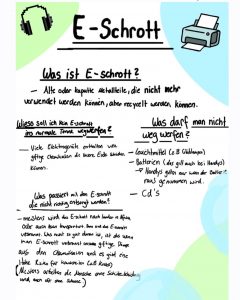 E-Schrott
Was ist E-schrott?
- Alte oder kaputte Metallteile, die nicht mehr
verwendet werden können, aber recycelt werden können.
Wieso soll ich kein E-schrott
ins normale Tonne wegwerfen?
- Viele Elektrogeräte enthalten sehr
giftige Chemikalien die
können.
Was darf man nicht
weg werfen?
- Leuchtmittel (z.B Glühlampen)
- Batterien (der gilt auch bei Handys)
↳ Handys gelten nur wenn der Batterie
raus genommen wird.
- Cd's
Was passiert mit dem E-schrott
die nicht richtig entsorgt werden?
- meistens wird das E-schrott nach Länder in Afrika
Oder auch
verbrannt. Was nicht so gut daran ist, ist das wenn
man E-schrott verbrennt giftige Dämpfe
aus den Chemikalien und es gibt eine
Hohe Risiko für Krankheiten (z.B Krebs)
(Meistens arbeiten die Menschen ohne Schutzkleidung
und auch oft ohne Schuhe)